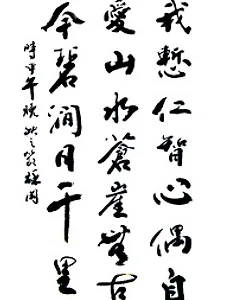 我慙仁智心偶自
愛山水蒼崖無古
今碧澗日千里
時甲午